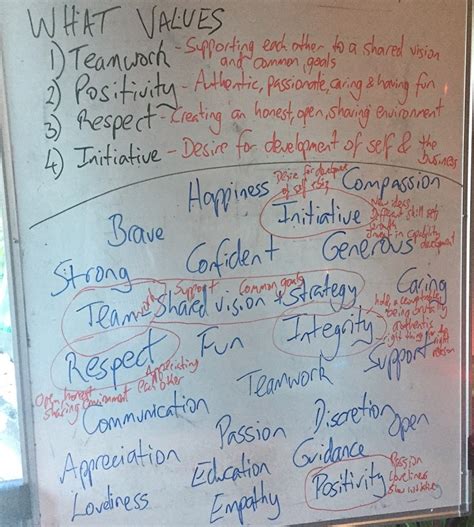 WHAT VALUES
1) Teamwork - Supporting each other to a shared vision
and common goals
2) Positivity - Authentic, passionate, caring & having fun
3) Respect - Creating an honest, open, sharing environment
4) Initiative - Desire for development of self & the
business
Happiness
Desire for
of self
Compassion
Initiative
New ideas
Different skill sets
growth
invest in capability
development
Brave
Confident
Generous
Strong
Support
Common goals
Caring
Teamwork
Shared vision + Strategy
being
authentic
right thing for
right
reason
Integrity
Respect
Fun
Support
Open, honest
Sharing environment
Appreciating
each other
Teamwork
Communication
Passion
Discretion
Open
Appreciation
Education
Guidance
Positivity
Passion
Loveliness
Loveliness
Empathy